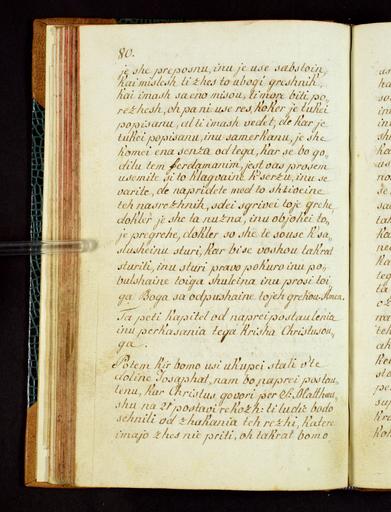 80.
je she preposnu, inu je use sabstoin,
kai mislesh ti zhes to ubogi greshnik,
kai imash saeno misou, ti more biti po,
rezhesh, oh pa ni use res, koker je tukei
popisanu, al ti imash vedet, de kar je
tukei popisanu, inu samerkanu, je she
komei ena senza od tega, kar se bo go,
dilu tem ferdamanim, jest vas prosem
usemite si to k'
serzu, inu se
varite, de napridete med to
teh nasrezhnik, sdei sgrivei toje grehe,
dokler je she ta nuzna, inu objokei to,
je pregrehe, dokler so she te souse k'sa,
slusheinu sturi, kar bi se voskou takrat
sturiti, inu sturi pravo pokuro inu po,
bulshaine toiga shuleina inu prosi toi
ga Boga sa odpushaine tojeh grehou. Amen.
Ta peti kapitel od naprei postaulenia
inu perkasania tega krisha Christusou,
ga.
Potem kir bomo usi ukupei stali v'te
doline Josaphat, nam bo naprei postau,
lenu, kar Christus govori per S: Matthou,
shu na 21 postavi rekozh: ti ludie bodo
sehnili od zhakania teh rezhi, katere
imajo zhes nie priti, oh takrat bomo